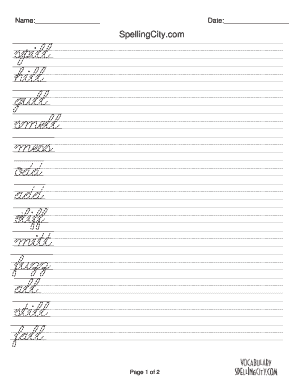 Name:_______________ Date:_______________
SpellingCity.com
spill
hill
gull
smell
mess
odd
add
sliff
mitt
fuzz
all
still
fall
Page 1 of 2
VOCABULARY
SPELLINGCITY.COM